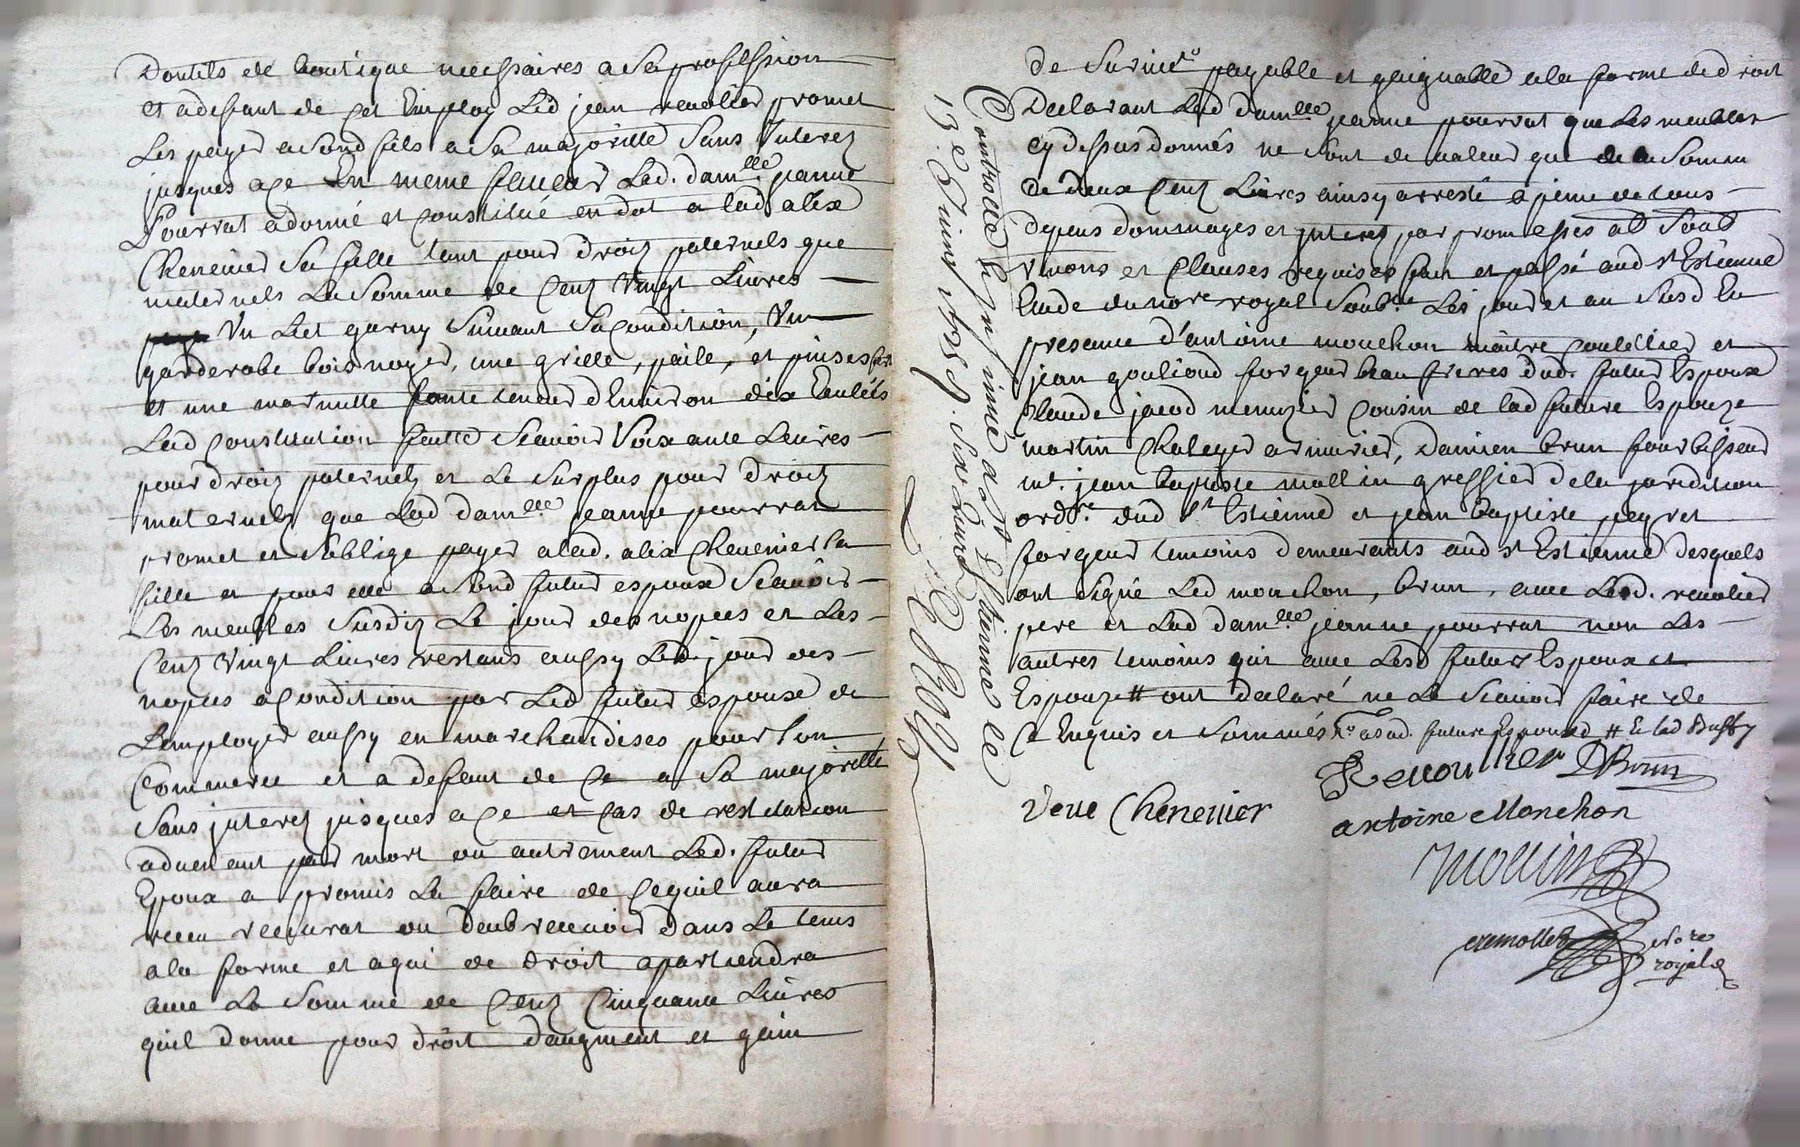 Doutils de boutique necessaires a sa proffession
et adeffaut de cet Employ Led jean revolier promet
Les payer a sond fils a sa majoritté sans Interez
jusques a ce En meme faveur Led. damlle jeanne
Pourrat a donné et constitué en dot a lad alix
Chenevier sa fille tant pour droitz paternels que
maternels La somme de Cent Vingt Livres
Un Lit garny suivant sa condition, Un
garderobe bois noyer, une grille, paile, et pinses
et une marmitte fonte tenant d'Environ dix
Lad constitution faitte scavoir soixante Livres
pour droitz paternels et Le surplus pour droitz
maternels que Lad damlle jeanne pourrat
promet et s'oblige payer a lad. alix Chenevier sa
fille et pour elle a sond futur espoux scavoir
Les meubles susditz Le jour des nopces et Les
Cent Vingt Livres restans aussy Led. jour des
nopces a condition par Led futur espoux de
L'employer aussy en marchandises pour son
Commerce et a deffaut de ce a sa majoritté
sans jnterez jusques a ce et cas de restitution
advenant par mort ou autrement Led. futur
Epoux a promis La faire de ce quil aura
receu recevrat ou deub recevoir dans Le tems
a la forme et a qui de droit apartiendra
avec La somme de Cent Cinquante Livres
quil donne pour droit d'augment et gain
Controllé et jnsinué a St Etienne le
13e
de survie payable et gaignable a la forme de droit
Declarant Lad damlle jeanne pourrat que Les meubles
cy dessus donnés ne sont de valeur que de la somme
de deux Cent Livres ainsy arresté a peine de tous
depens dommages et jnterez par promesses obl soub
et clauses requises fait et passé aud st Estienne
Etude du nore royal soubné Les jour et an susd En
presence d'antoine mouchon maitre coutellier et
jean goulioud forgeur beau freres dud. futur Espoux
Claude jacod menuzier cousin de lad future Espouze
martin Chaleyer armurier, Damien brun fourbisseur
me. jean baptiste mollin greffier de la juridition
ordre dud st Estienne et jean baptiste peyret
forgeur temoins demeurants aud st Estienne desquels
ont signé Led mouchon, brun, avec Led. revolier
pere et Lad damlle jeanne pourrat non Les
autres temoins qui avec Lesd futurs Espoux et
Espouze # ont declaré ne Le scavoir faire de
Ce Enquis et sommés
Revollier DBrun
Veve Chenevier
antoine Mouchon
mollin
nore
royal